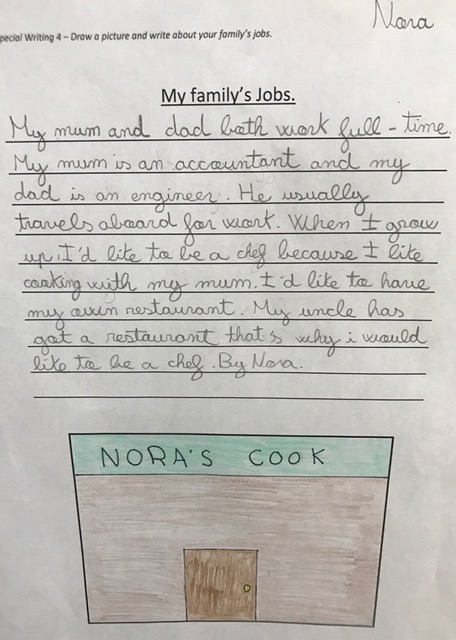 Nora
pecial Writing 4 – Draw a picture and write about your family's jobs.
My family's Jobs.
My mum and dad both work full - time.
My mum is an accountant and my
dad is an engineer. He usually
travels aboard for work. When I grow
up, I'd lite to be a chef because I like
cooking with my mum. I'd like to have
my own restaurant. My uncle has
got a restaurant that's why i would
like to be a chef. By Nora.
NORA'S COOK